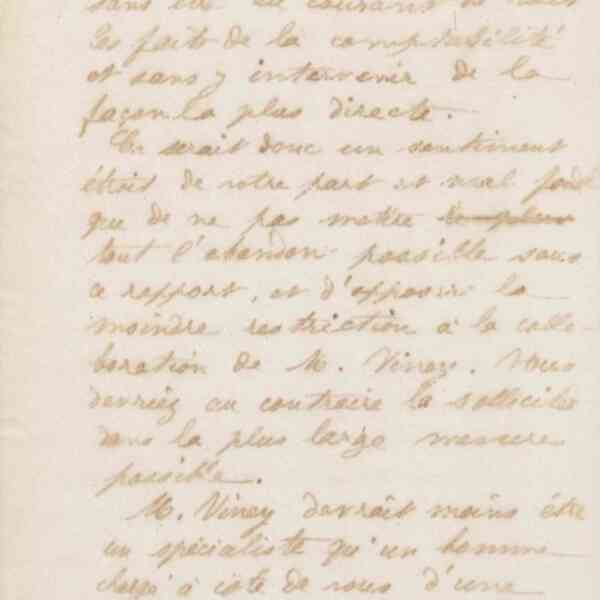 sans être au courant de tous
les faits de la comptabilité
et sans y intervenir de la
façon la plus directe.
Ce serait donc un sentiment
étroit de votre part et mal fondé
que de ne pas mettre le plus
tout l'abandon possible sous
ce rapport, et d'apposer la
moindre restriction à la colla-
boration de M. Viney. Vous
devriez au contraire la solliciter
dans la plus large mesure
possible.
M. Viney devrait moins être
un spécialiste qu'un homme
chargé à côté de vous d'une